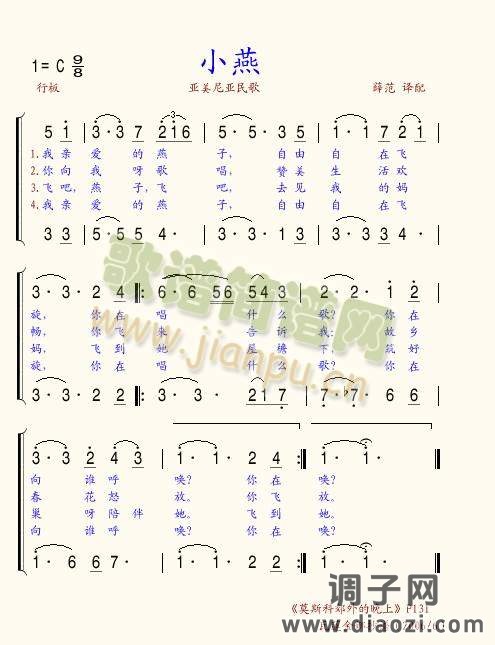 小燕
1=C 9/8
行板 亚美尼亚民歌 薛范 译配
5 i 3·3 7 2i6 5·5·35 i·i 77
1.我亲 爱的燕 子，自由 自在飞
2.你向 我呀歌 唱，赞美 生活欢
3.飞吧，燕子，飞 吧，去见 我的妈
4.我亲 爱的燕 子，自由 自在飞
33 5·54 3·3·13 3·34·
3·3·24 6·6 56 543 2·2·i2
旋，你在 唱 什么 歌？你在
畅，你飞 来 告诉 我：故乡
妈，飞到 她 屋檐 下，筑好
旋，你在 唱 什么 歌？你在
3·3·22 3·3· 217 7·7·66
3·3 243 i·i·24 i·i·
向 谁呼 唤？你在 唤？
春 花怒 放。你飞 放。
巢 呀陪伴 她。飞到 她。
向 谁呼 唤？你在 唤？
i·667· i·i·22 i·i·
歌谱简谱网
www.jianpu.cn
《莫斯科郊外的晚上》P131
调子网
www.diaozi.com